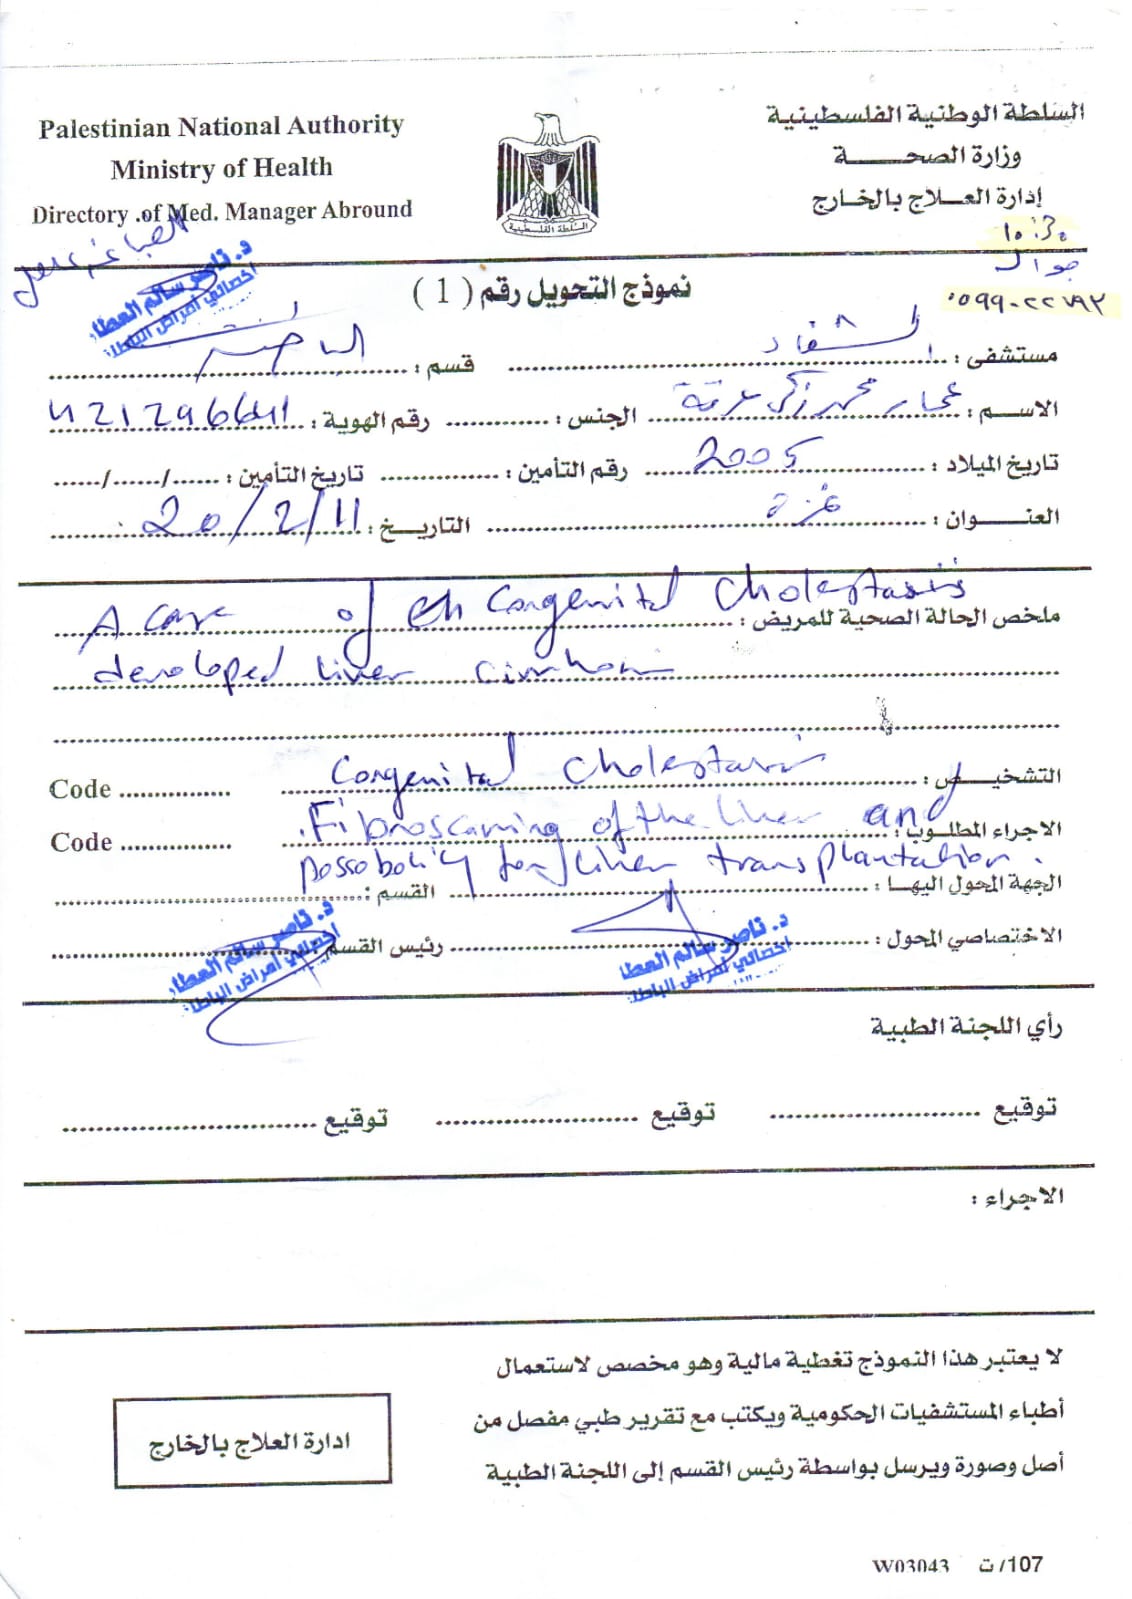 Palestinian National Authority
Ministry of Health
Directory .of Med. Manager Abround
السلطة الوطنية الفلسطينية
وزارة الصحـــــة
إدارة العـــلاج بالخارج
السلطة الفلسطينية
١٠:٣٠
جوال
د. ناصر سالم العطار
أخصائي أمراض الباطنة
نموذج التحويل رقم ( 1 )
مستشفى : الشفاء قسم : الباطنة
الاســم : عمار محمد زكي الجنس : رقم الهوية : 421296641
تاريخ الميلاد : 2005 رقم التأمين : تاريخ التأمين : ....../....../......
العنــــوان : غزة التاريــخ : 20/2/11
ملخص الحالة الصحية للمريض : A case of ch Congenital Cholestasis
developed liver cirrhosis
التشخيــص : Congenital Cholestasis Code
الاجراء المطلــوب : Fibroscanning of the liver and Code
possobolity for liver transplantation.
الجهة المحول اليهـا : القسم :
الاختصاصي المحول : رئيس القسم
د. ناصر سالم العطار
أخصائي أمراض الباطنة
د. ناصر سالم العطار
أخصائي أمراض الباطنة
رأي اللجنة الطبية
توقيع توقيع توقيع
الاجراء :
لا يعتبر هذا النموذج تغطية مالية وهو مخصص لاستعمال
أطباء المستشفيات الحكومية ويكتب مع تقرير طبي مفصل من
أصل وصورة ويرسل بواسطة رئيس القسم إلى اللجنة الطبية
ادارة العلاج بالخارج
W03043 ت /107